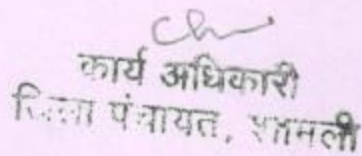 कार्य अधिकारी
जिला पंचायत, शामली